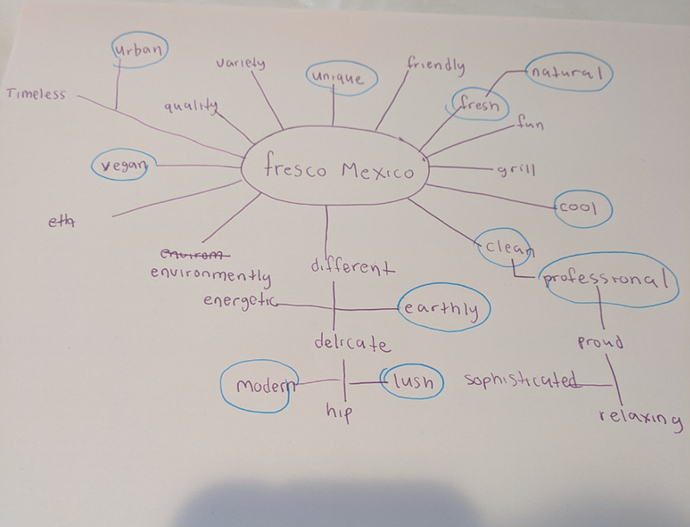 urban
variety
unique
friendly
natural
Timeless
quality
fresh
fun
vegan
fresco Mexico
grill
cool
eth
environ
environmently
different
clean
professional
energetic
earthly
delicate
proud
modern
lush
sophisticated
hip
relaxing